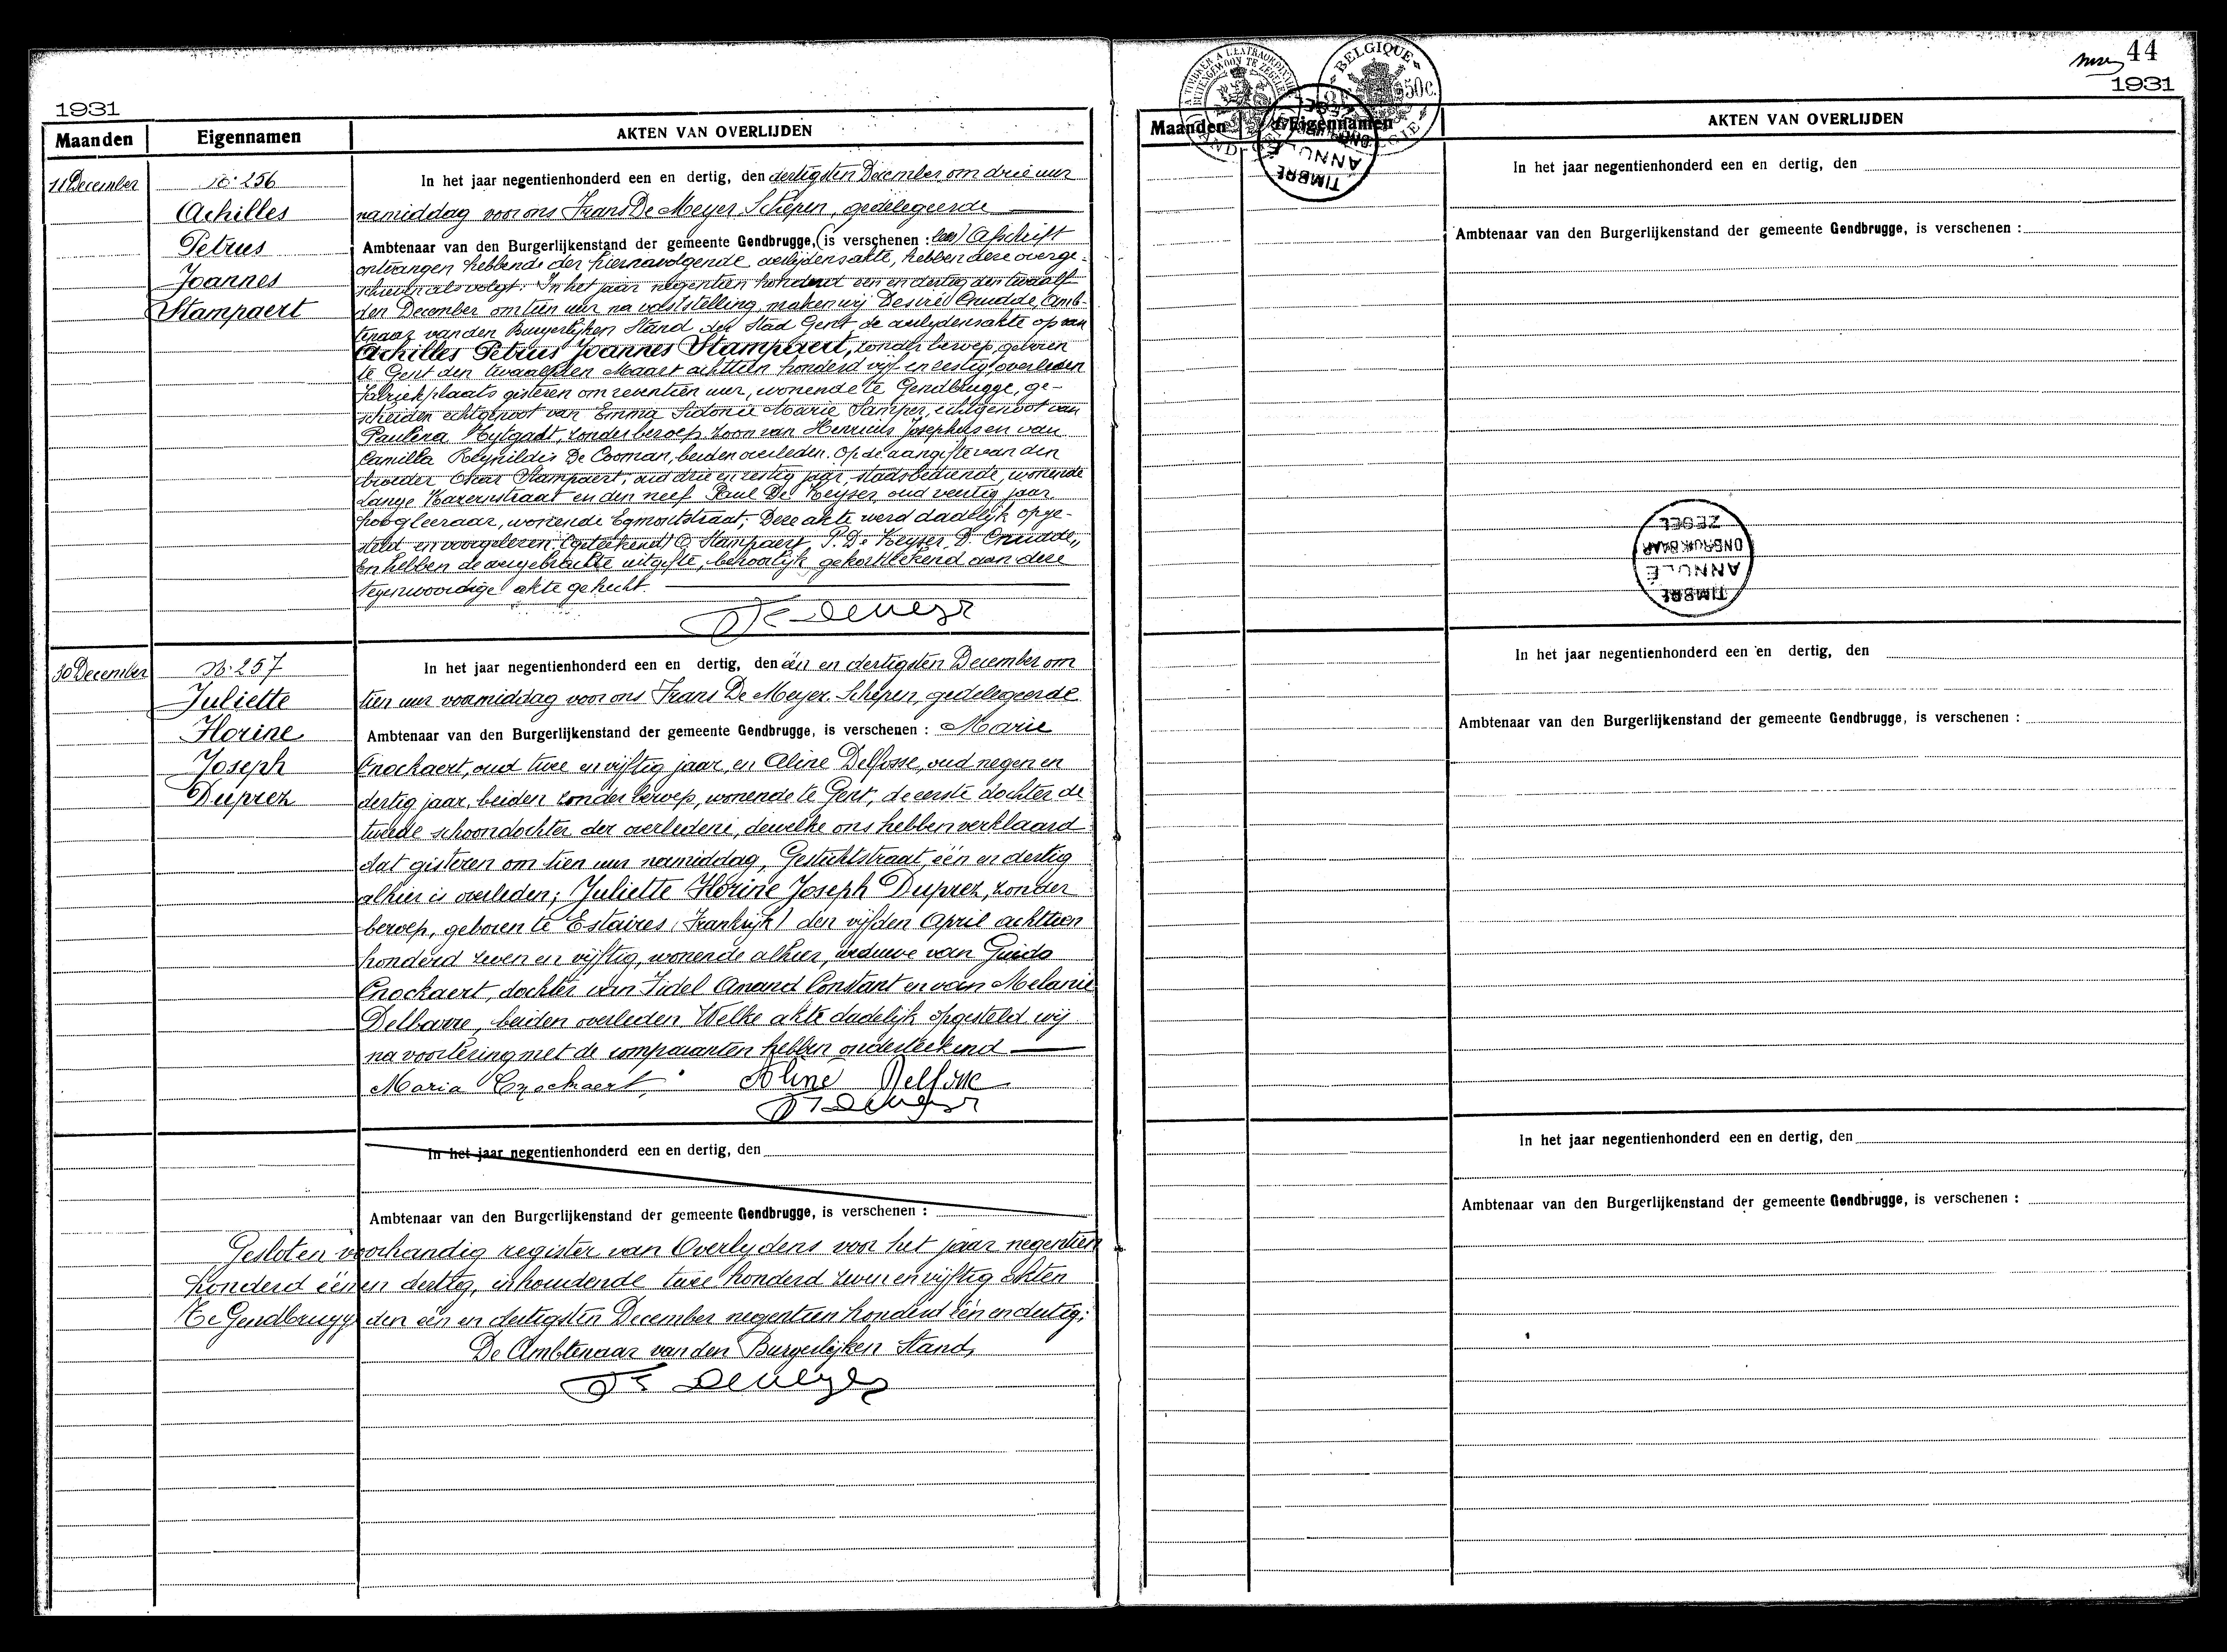 1931
Maanden Eigennamen AKTEN VAN OVERLIJDEN
11 December
N° 256
Achilles
Petrus
Joannes
Stampaert
In het jaar negentienhonderd een en dertig, den dertigsten December om drie uur
namiddag voor ons Frans De Meyer Schepen, gedelegeerde
Ambtenaar van den Burgerlijkenstand der gemeente Gendbrugge, (is verschenen : lees) Afschrift
ontvangen hebbende der hiernavolgende overlijdensakte, hebben deze overge-
schreven als volgt: In het jaar negentien honderd een en dertig den twaalf
den December om tien uur na vaststelling, maken wij Desiré Cnudde, Amb-
tenaar van den Burgerlijken Stand der Stad Gent de overlijdensakte op van
Achilles Petrus Joannes Stampaert, zonder beroep, geboren
te Gent den twaalfden Maart achttien honderd vijf en zestig, overleden
Fabriekplaats gisteren om zeventien uur, wonende te Gendbrugge, ge-
scheiden echtgenoot van Emma Sidonie Marie Samper, echtgenoot van
Paulina Uytgadt, zonder beroep, zoon van Henricus Josephus en van
Camilla Reynildis De Cooman, beiden overleden. Op de aangifte van den
broeder Oscar Stampaert, oud drie en zestig jaar, stadsbediende, wonende
Lange Kazernstraat en den neef Paul De Keyser, oud veertig jaar
hoogleeraar, wonende Egmontstraat; Deze akte werd dadelijk opge-
steld en voorgelezen. (geteekend) O. Stampaert P. De Keyser, D. Cnudde,,
en hebben de overgebrachte uitgifte, behoorlijk gekortteekend aan deze
tegenwoordige akte gehecht.
Fr Demeyer
30 December
N° 257
Juliette
Florine
Joseph
Duprez
In het jaar negentienhonderd een en dertig, den één en dertigsten December om
tien uur voormiddag voor ons Frans De Meyer. Schepen, gedelegeerde
Ambtenaar van den Burgerlijkenstand der gemeente Gendbrugge, is verschenen : Marie
Cnockaert, oud twee en vijftig jaar, en Aline Delfosse, oud negen en
dertig jaar, beiden zonder beroep, wonende te Gent, de eerste dochter de
tweede schoondochter der overledene, dewelke ons hebben verklaard
dat gisteren om tien uur namiddag, Gestichtstraat, één en dertig
alhier is overleden; Juliette Florine Joseph Duprez, zonder
beroep, geboren te Estaires (Frankrijk) den vijfden April achttien
honderd zeven en vijftig, wonende alhier, weduwe van Guido
Cnockaert, dochter van Fidel Amand Constant en van Melanie
Delbarre, beiden overleden. Welke akte dadelijk opgesteld wij
na voorlezing met de comparanten hebben onderteekend
Maria Cnockaert, Aline Delfosse
Fr Demeyer
In het jaar negentienhonderd een en dertig, den
Ambtenaar van den Burgerlijkenstand der gemeente Gendbrugge, is verschenen :
Gesloten voorhandig register van Overlydens voor het jaar negentien
honderd één en dertig, inhoudende twee honderd zeven en vijftig akten
Te Gendbrugge den één en dertigsten December negentien honderd één en dertig;
De Ambtenaar van den Burgerlijken Stand,
Fr Demeyer
44
1931
BELGIQUE
50c.
Maanden Eigennamen AKTEN VAN OVERLIJDEN
TIMBRE
ANNULÉ
ONBRUIKBAAR
ZEGEL
In het jaar negentienhonderd een en dertig, den
Ambtenaar van den Burgerlijkenstand der gemeente Gendbrugge, is verschenen :
ZEGEL
ONBRUIKBAAR
ANNULÉ
TIMBRE
In het jaar negentienhonderd een en dertig, den
Ambtenaar van den Burgerlijkenstand der gemeente Gendbrugge, is verschenen :
In het jaar negentienhonderd een en dertig, den
Ambtenaar van den Burgerlijkenstand der gemeente Gendbrugge, is verschenen :